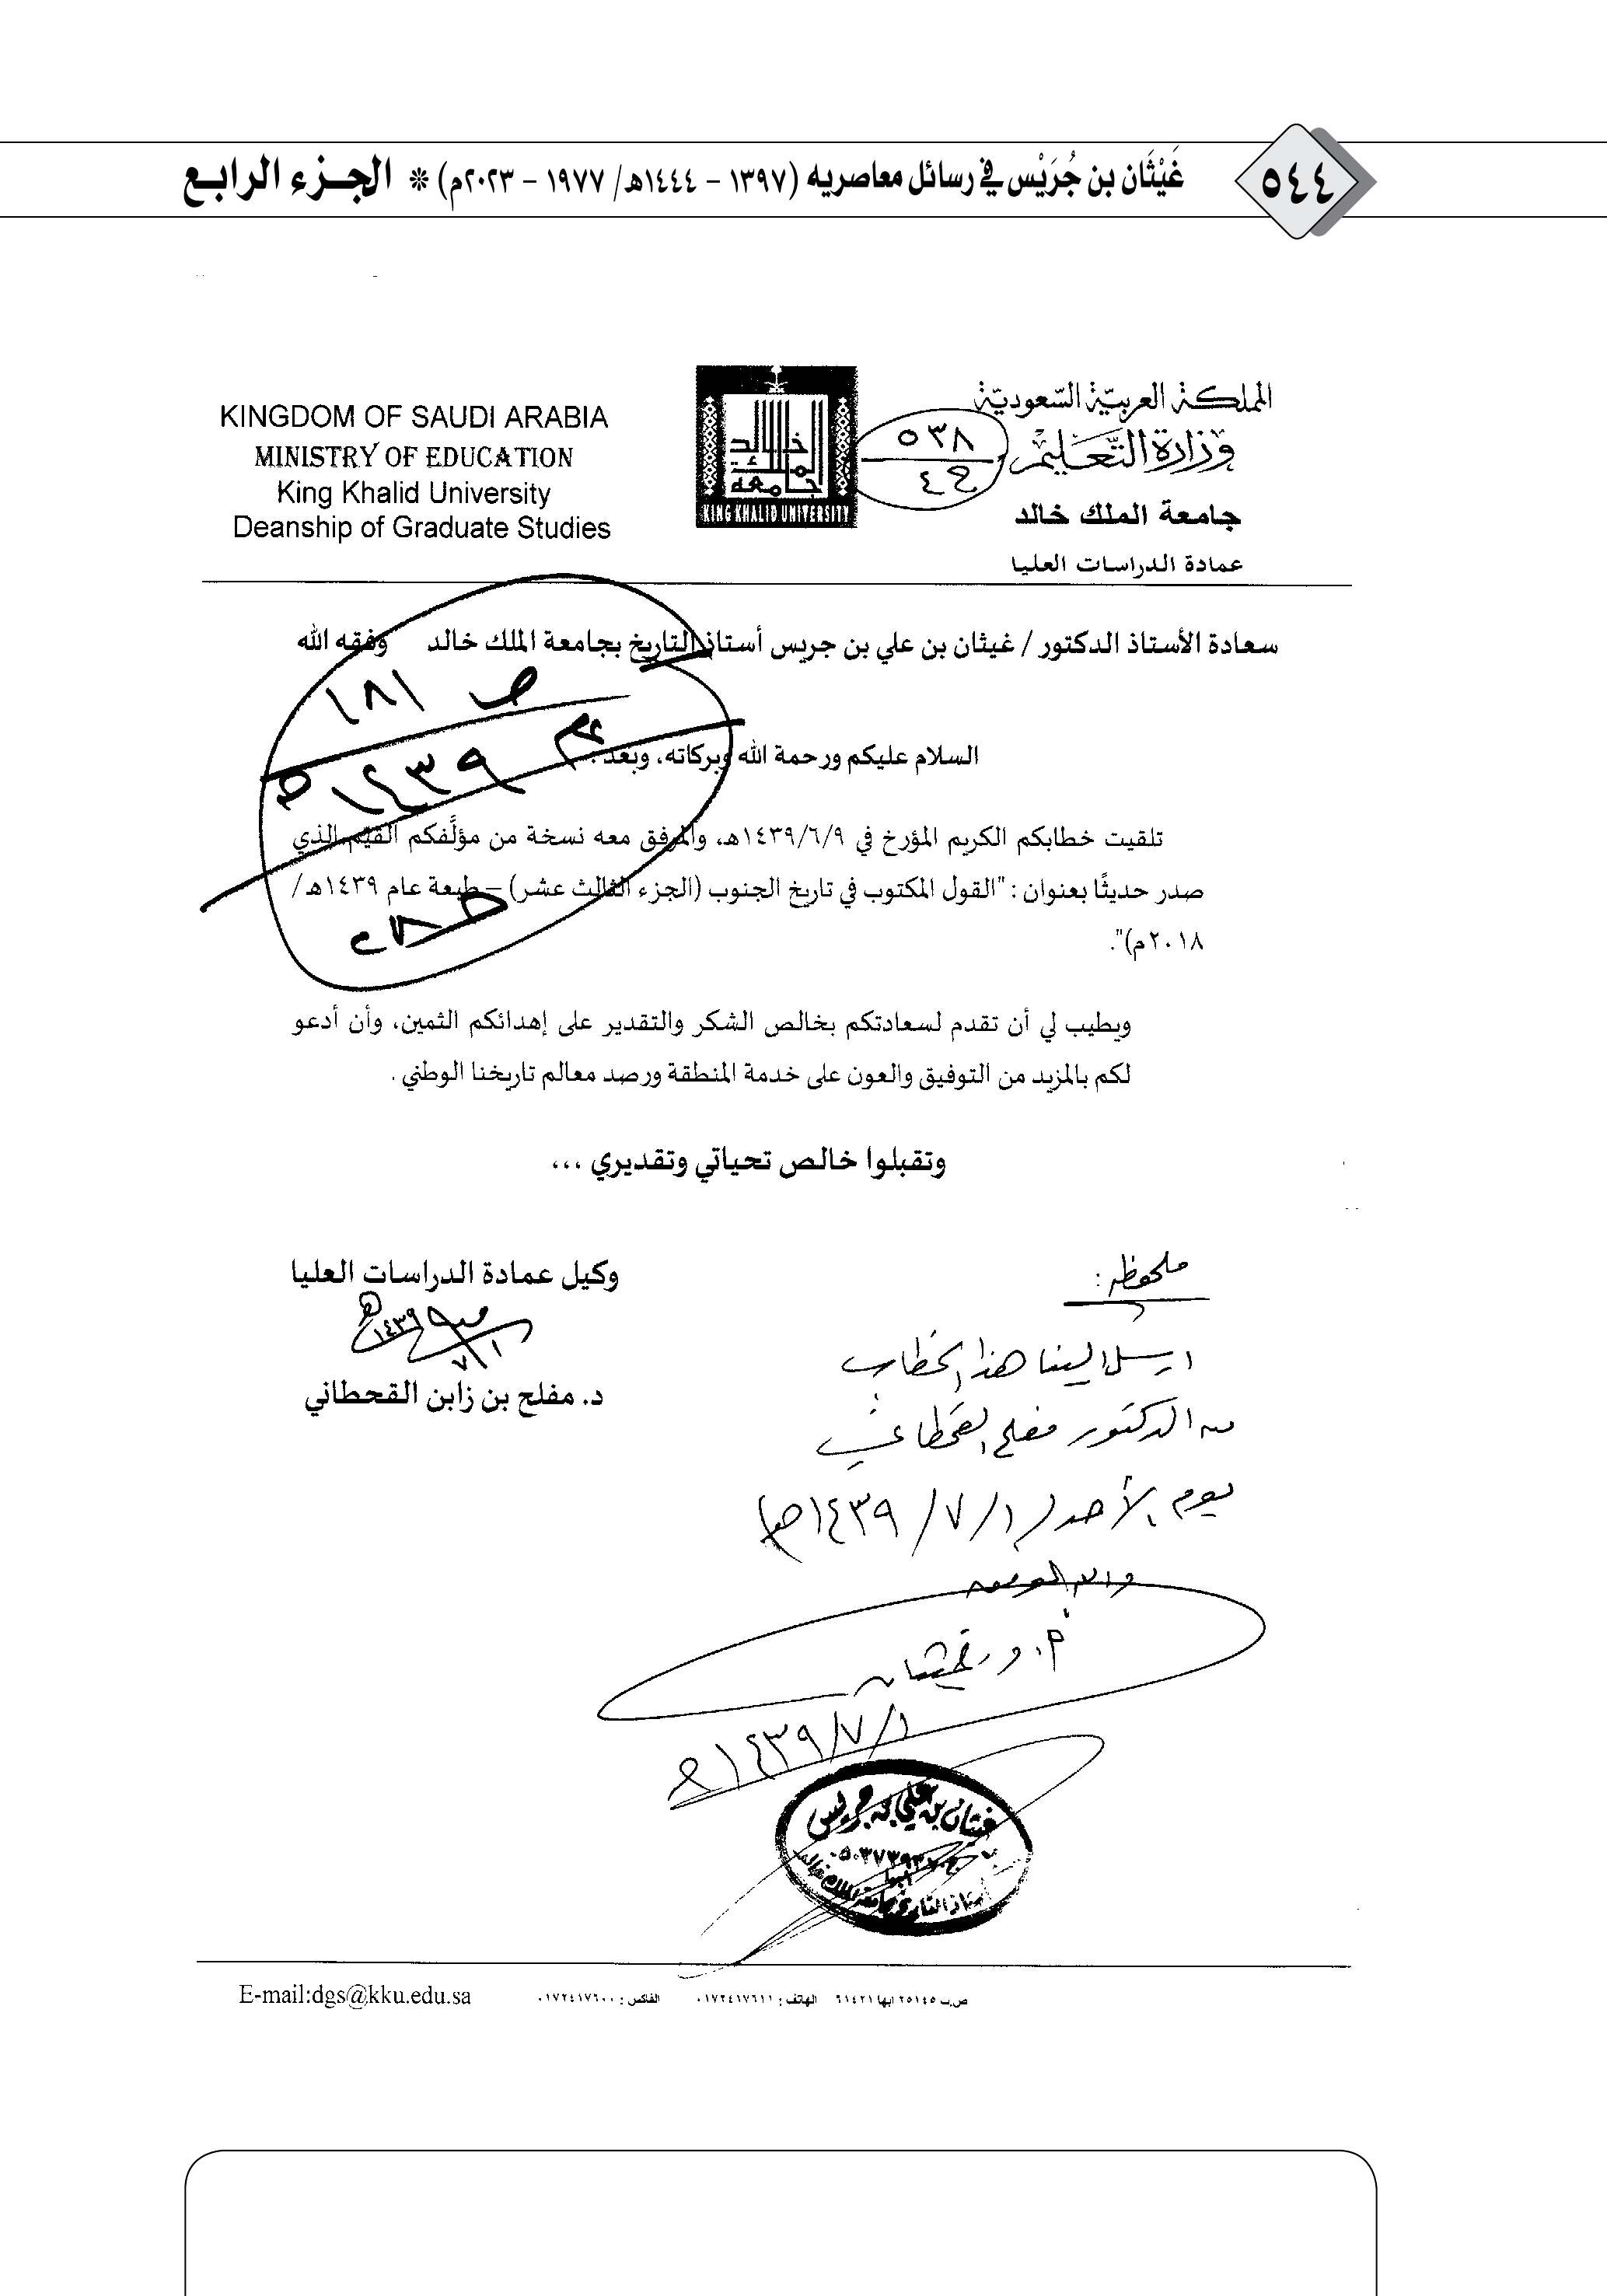 ٥٤٤
غَيْثَان بن جُرَيْس في رسائل معاصريه (١٣٩٧ - ١٤٤٤هـ/ ١٩٧٧ - ٢٠٢٣م) * الجزء الرابع
المملكة العربية السعودية
وزارة التعليم
جامعة الملك خالد
عمادة الدراسات العليا
٥٣٨
ج٤
KING KHALID UNIVERSITY
KINGDOM OF SAUDI ARABIA
MINISTRY OF EDUCATION
King Khalid University
Deanship of Graduate Studies
سعادة الأستاذ الدكتور / غيثان بن علي بن جريس أستاذ التاريخ بجامعة الملك خالد وفقه الله
ص ١٨١
١٤٣٩هـ
السلام عليكم ورحمة الله وبركاته، وبعد :
تلقيت خطابكم الكريم المؤرخ في ١٤٣٩/٦/٩هـ، والمرفق معه نسخة من مؤلَّفكم القيّم الذي
صدر حديثًا بعنوان : "القول المكتوب في تاريخ الجنوب (الجزء الثالث عشر) – طبعة عام ١٤٣٩هـ/
٢٠١٨م)".
ويطيب لي أن تقدم لسعادتكم بخالص الشكر والتقدير على إهدائكم الثمين، وأن أدعو
لكم بالمزيد من التوفيق والعون على خدمة المنطقة ورصد معالم تاريخنا الوطني .
وتقبلوا خالص تحياتي وتقديري ...
وكيل عمادة الدراسات العليا
١٤٣٩هـ
٧/١
د. مفلح بن زابن القحطاني
ملحوظة :
ارسل الينا هذا الخطاب
من الدكتور مفلح القحطاني
يوم الأحد ١/ ٧/ ١٤٣٩هـ
والله الموفق
أ.د. غيثان
١/٧/١٤٣٩هـ
غيثان بن علي بن جريس
أبها
أستاذ التاريخ بجامعة الملك خالد
ص.ب ٢٥١٤٥ ابها ٦١٤٢١ الهاتف : ٠١٧٢٤١٧٦١١ الفاكس : ٠١٧٢٤١٧٦٠٠
E-mail:dgs@kku.edu.sa